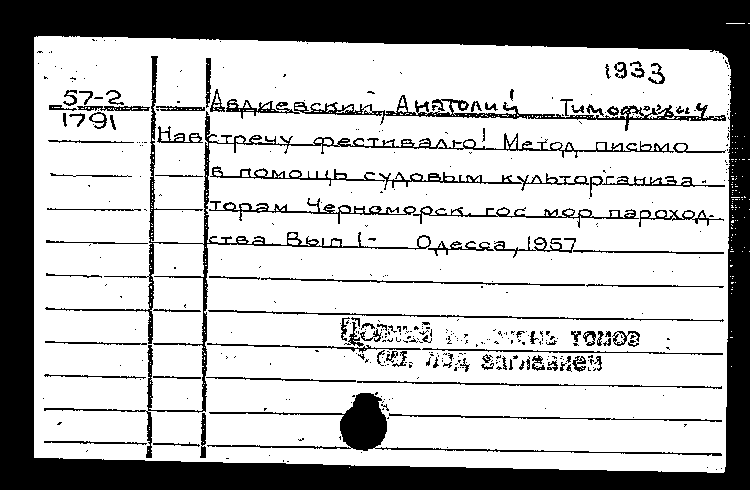 1933
57-2 Авдиевский, Анатолий Тимофеевич
1791
Навстречу фестивалю! Метод письмо
в помощь судовым культорганиза-
торам Черноморск. гос мор пароход-
ства Вып 1- Одесса, 1957
Полный томов
см. под заглавием